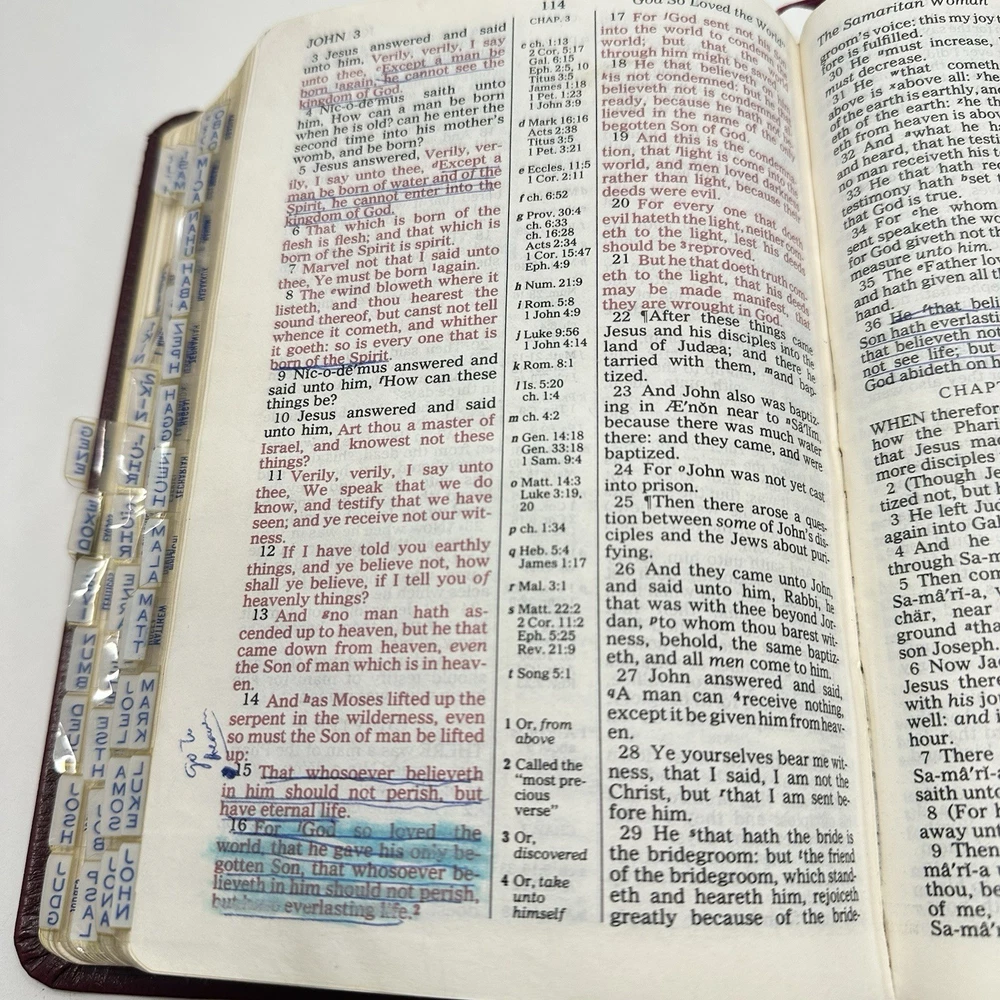 114
JOHN 3
3 Jesus answered and said
unto him, Verily, verily, I say
unto thee, cExcept a man be
born 1again, he cannot see the
kingdom of God.
4 Nĭc-o-dē´mus saith unto
him, How can a man be born
when he is old? can he enter the
second time into his mother's
womb, and be born?
5 Jesus answered, Verily, ver-
ily, I say unto thee, dExcept a
man be born of water and of the
Spirit, he cannot enter into the
kingdom of God.
6 That which is born of the
flesh is flesh; and that which is
born of the Spirit is spirit.
7 Marvel not that I said unto
thee, Ye must be born 1again.
8 The ewind bloweth where it
listeth, and thou hearest the
sound thereof, but canst not tell
whence it cometh, and whither
it goeth: so is every one that is
born of the Spirit.
9 Nĭc-o-dē´mus answered and
said unto him, fHow can these
things be?
10 Jesus answered and said
unto him, Art thou a master of
Israel, and knowest not these
things?
11 Verily, verily, I say unto
thee, We speak that we do
know, and testify that we have
seen; and ye receive not our wit-
ness.
12 If I have told you earthly
things, and ye believe not, how
shall ye believe, if I tell you of
heavenly things?
13 And gno man hath as-
cended up to heaven, but he that
came down from heaven, even
the Son of man which is in heav-
en.
14 And has Moses lifted up the
serpent in the wilderness, even
so must the Son of man be lifted
up:
15 That whosoever believeth
in him should not perish, but
have eternal life.
16 For iGod so loved the
world, that he gave his only be-
gotten Son, that whosoever be-
lieveth in him should not perish,
but have everlasting life.2
go to
heaven
CHAP. 3
c ch. 1:13
2 Cor. 5:17
Gal. 6:15
Eph. 2:5, 10
Titus 3:5
James 1:18
1 Pet. 1:23
1 John 3:9
d Mark 16:16
Acts 2:38
Titus 3:5
1 Pet. 3:21
e Eccles. 11:5
1 Cor. 2:11
f ch. 6:52
g Prov. 30:4
ch. 6:33
ch. 16:28
Acts 2:34
1 Cor. 15:47
Eph. 4:9
h Num. 21:9
i Rom. 5:8
1 John 4:9
j Luke 9:56
1 John 4:14
k Rom. 8:1
l Is. 5:20
ch. 1:4
m ch. 4:2
n Gen. 14:18
Gen. 33:18
1 Sam. 9:4
o Matt. 14:3
Luke 3:19,
20
p ch. 1:34
q Heb. 5:4
James 1:17
r Mal. 3:1
s Matt. 22:2
2 Cor. 11:2
Eph. 5:25
Rev. 21:9
t Song 5:1
1 Or, from
above
2 Called the
"most pre-
cious
verse"
3 Or,
discovered
4 Or, take
unto
himself
God So Loved the World
17 For jGod sent not his
into the world to condemn
world; but that the
through him might be saved
18 He that believeth on
kis not condemned: but he that
believeth not is condemned
ready, because he hath not
lieved in the name of the only
begotten Son of God.
19 And this is the condemna-
tion, that llight is come into the
world, and men loved darkness
rather than light, because their
deeds were evil.
20 For every one that doeth
evil hateth the light, neither com-
eth to the light, lest his deeds
should be 3reproved.
21 But he that doeth truth com-
eth to the light, that his deeds
may be made manifest, that
they are wrought in God.
22 ¶After these things came
Jesus and his disciples into the
land of Judæa; and there he
tarried with them, mand bap-
tized.
23 And John also was baptiz-
ing in Æ´nŏn near to nSā´lĭm,
because there was much water
there: and they came, and were
baptized.
24 For oJohn was not yet cast
into prison.
25 ¶Then there arose a ques-
tion between some of John's dis-
ciples and the Jews about puri-
fying.
26 And they came unto John,
and said unto him, Rabbi, he
that was with thee beyond Jor-
dan, pto whom thou barest wit-
ness, behold, the same baptiz-
eth, and all men come to him.
27 John answered and said,
qA man can 4receive nothing,
except it be given him from heav-
en.
28 Ye yourselves bear me wit-
ness, that I said, I am not the
Christ, but rthat I am sent be-
fore him.
29 He sthat hath the bride is
the bridegroom: but tthe friend
of the bridegroom, which stand-
eth and heareth him, rejoiceth
greatly because of the bride-
The Samaritan Woman
groom's voice: this my joy
fore is fulfilled.
30 He umust increase,
must decrease.
31 He wthat cometh
above is xabove all: yhe
of the earth is earthly, and
eth of the earth: zhe th
eth from heaven is abov
32 And awhat he h
and heard, that he testi
no man receiveth his t
33 He that hath re
testimony hath bset t
that God is true.
34 For che whom
sent speaketh the wo
for God giveth not th
measure unto him.
35 The eFather lov
and hath given all t
hand.
36 He fthat beli
Son hath everlasti
that believeth not
not see life; but
God abideth on h
CHAP
WHEN therefor
how the Phari
that Jesus ma
more disciples
2 (Though Je
tized not, but h
3 He left Jud
again into Gal
4 And he
through Sa-m
5 Then com
Sa-mâ´rĭ-a, w
chär, near
ground atha
son Joseph.
6 Now Jac
Jesus there
with his jo
well: and i
hour.
7 There
Sa-mâ´rĭ-a
saith unto
8 (For h
away unt
9 Then
mâ´rĭ-a u
thou, be
of me,
Sa-mâ´r
GENE
EXOD
NUMB
DEUT
JOSH
JUDG
ESTH
JOB
PSAL
OBAD
MICA
NAHU
HABA
ZEPH
HAGG
MALA
MATT
MARK
LUKE
JOHN
JOEL
AMOS
JONA